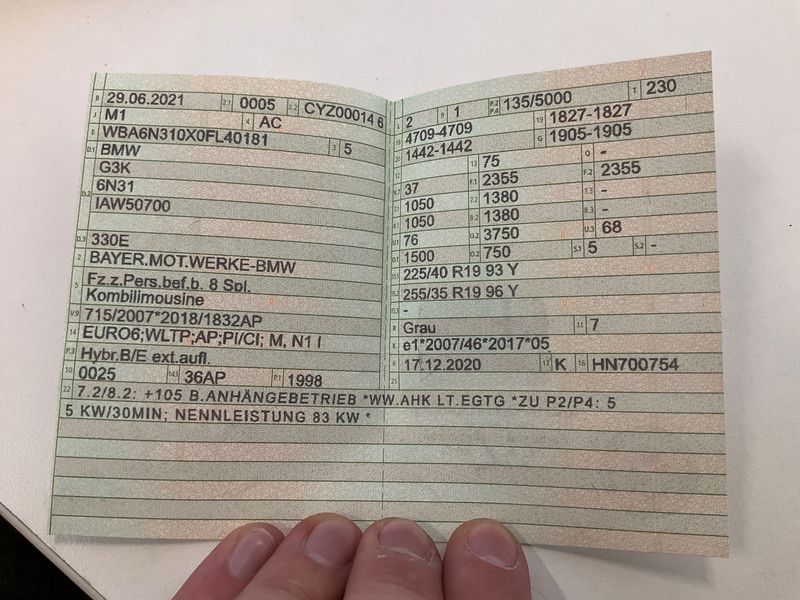 B 29.06.2021 2.1 0005 2.2 CYZ00014 6
J M1 4 AC
E WBA6N310X0FL40181 3 5
D.1 BMW
D.2 G3K
6N31
IAW50700
D.3 330E
2 BAYER.MOT.WERKE-BMW
5 Fz.z.Pers.bef.b. 8 Spl.
Kombilimousine
V.9 715/2007*2018/1832AP
14 EURO6;WLTP;AP;PI/CI; M, N1 I
P.3 Hybr.B/E ext.aufl.
10 0025 14.1 36AP P.1 1998
L 2 9 1 P.2 P.4 135/5000 T 230
18 4709-4709 19 1827-1827
20 1442-1442 G 1905-1905
12 - 13 75 Q -
V.7 37 F.1 2355 F.2 2355
7.1 1050 7.2 1380 7.3 -
8.1 1050 8.2 1380 8.3 -
U.1 76 U.2 3750 U.3 68
O.1 1500 O.2 750 S.1 5 S.2 -
15.1 225/40 R19 93 Y
15.2 255/35 R19 96 Y
15.3 -
R Grau 11 7
K e1*2007/46*2017*05
6 17.12.2020 17 K 16 HN700754
21
22 7.2/8.2: +105 B.ANHÄNGEBETRIEB *WW.AHK LT.EGTG *ZU P2/P4: 5
5 KW/30MIN; NENNLEISTUNG 83 KW *